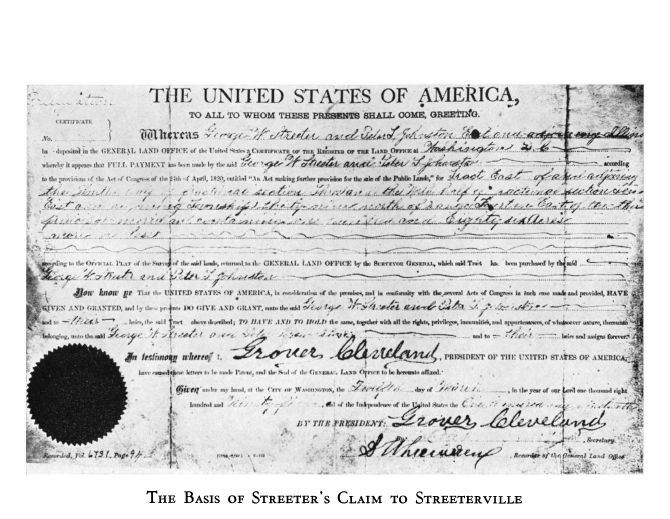 THE UNITED STATES OF AMERICA,
TO ALL TO WHOM THESE PRESENTS SHALL COME, GREETING.
CERTIFICATE
No.
Whereas George W. Streeter and Peter S. Johnston East and adjoining
ha deposited in the GENERAL LAND OFFICE of the United States a CERTIFICATE OF THE REGISTER OF THE LAND OFFICE at Washington D C
whereby it appears that FULL PAYMENT has been made by the said George W Streeter and Peter S Johnston according
to the provisions of the Act of Congress of the 24th of April, 1820, entitled "An Act making further provision for the sale of the Public Lands," for Tract East of and adjoining
section
East and adjoining Township Thirty nine north of range Fourteen East of the third
principal meridian containing one hundred and Eighty six Acres
more or less
according to the OFFICIAL PLAT of the Survey of the said Lands, returned to the GENERAL LAND OFFICE by the SURVEYOR GENERAL, which said Tract has been purchased by the said
George W. Streeter and Peter S Johnston
Now know ye That the UNITED STATES OF AMERICA, in consideration of the premises, and in conformity with the several Acts of Congress in such case made and provided, HAVE
GIVEN AND GRANTED, and by these presents DO GIVE AND GRANT, unto the said George W Streeter and Peter S Johnston
and to their heirs, the said Tract above described; TO HAVE AND TO HOLD the same, together with all the rights, privileges, immunities, and appurtenances, of whatsoever nature, thereunto
belonging, unto the said George W Streeter and and to their heirs and assigns forever.
In testimony whereof I, Grover Cleveland, PRESIDENT OF THE UNITED STATES OF AMERICA,
have caused these letters to be made Patent, and the Seal of the GENERAL LAND OFFICE to be hereunto affixed.
Given under my hand, at the CITY OF WASHINGTON, the day of March, in the year of our Lord one thousand eight
hundred and Ninety and of the Independence of the United States the One hundred and
BY THE PRESIDENT: Grover Cleveland
Secretary.
Recorded, Vol. 6731, Page 94 Recorder of the General Land Office
The Basis of Streeter's Claim to Streeterville